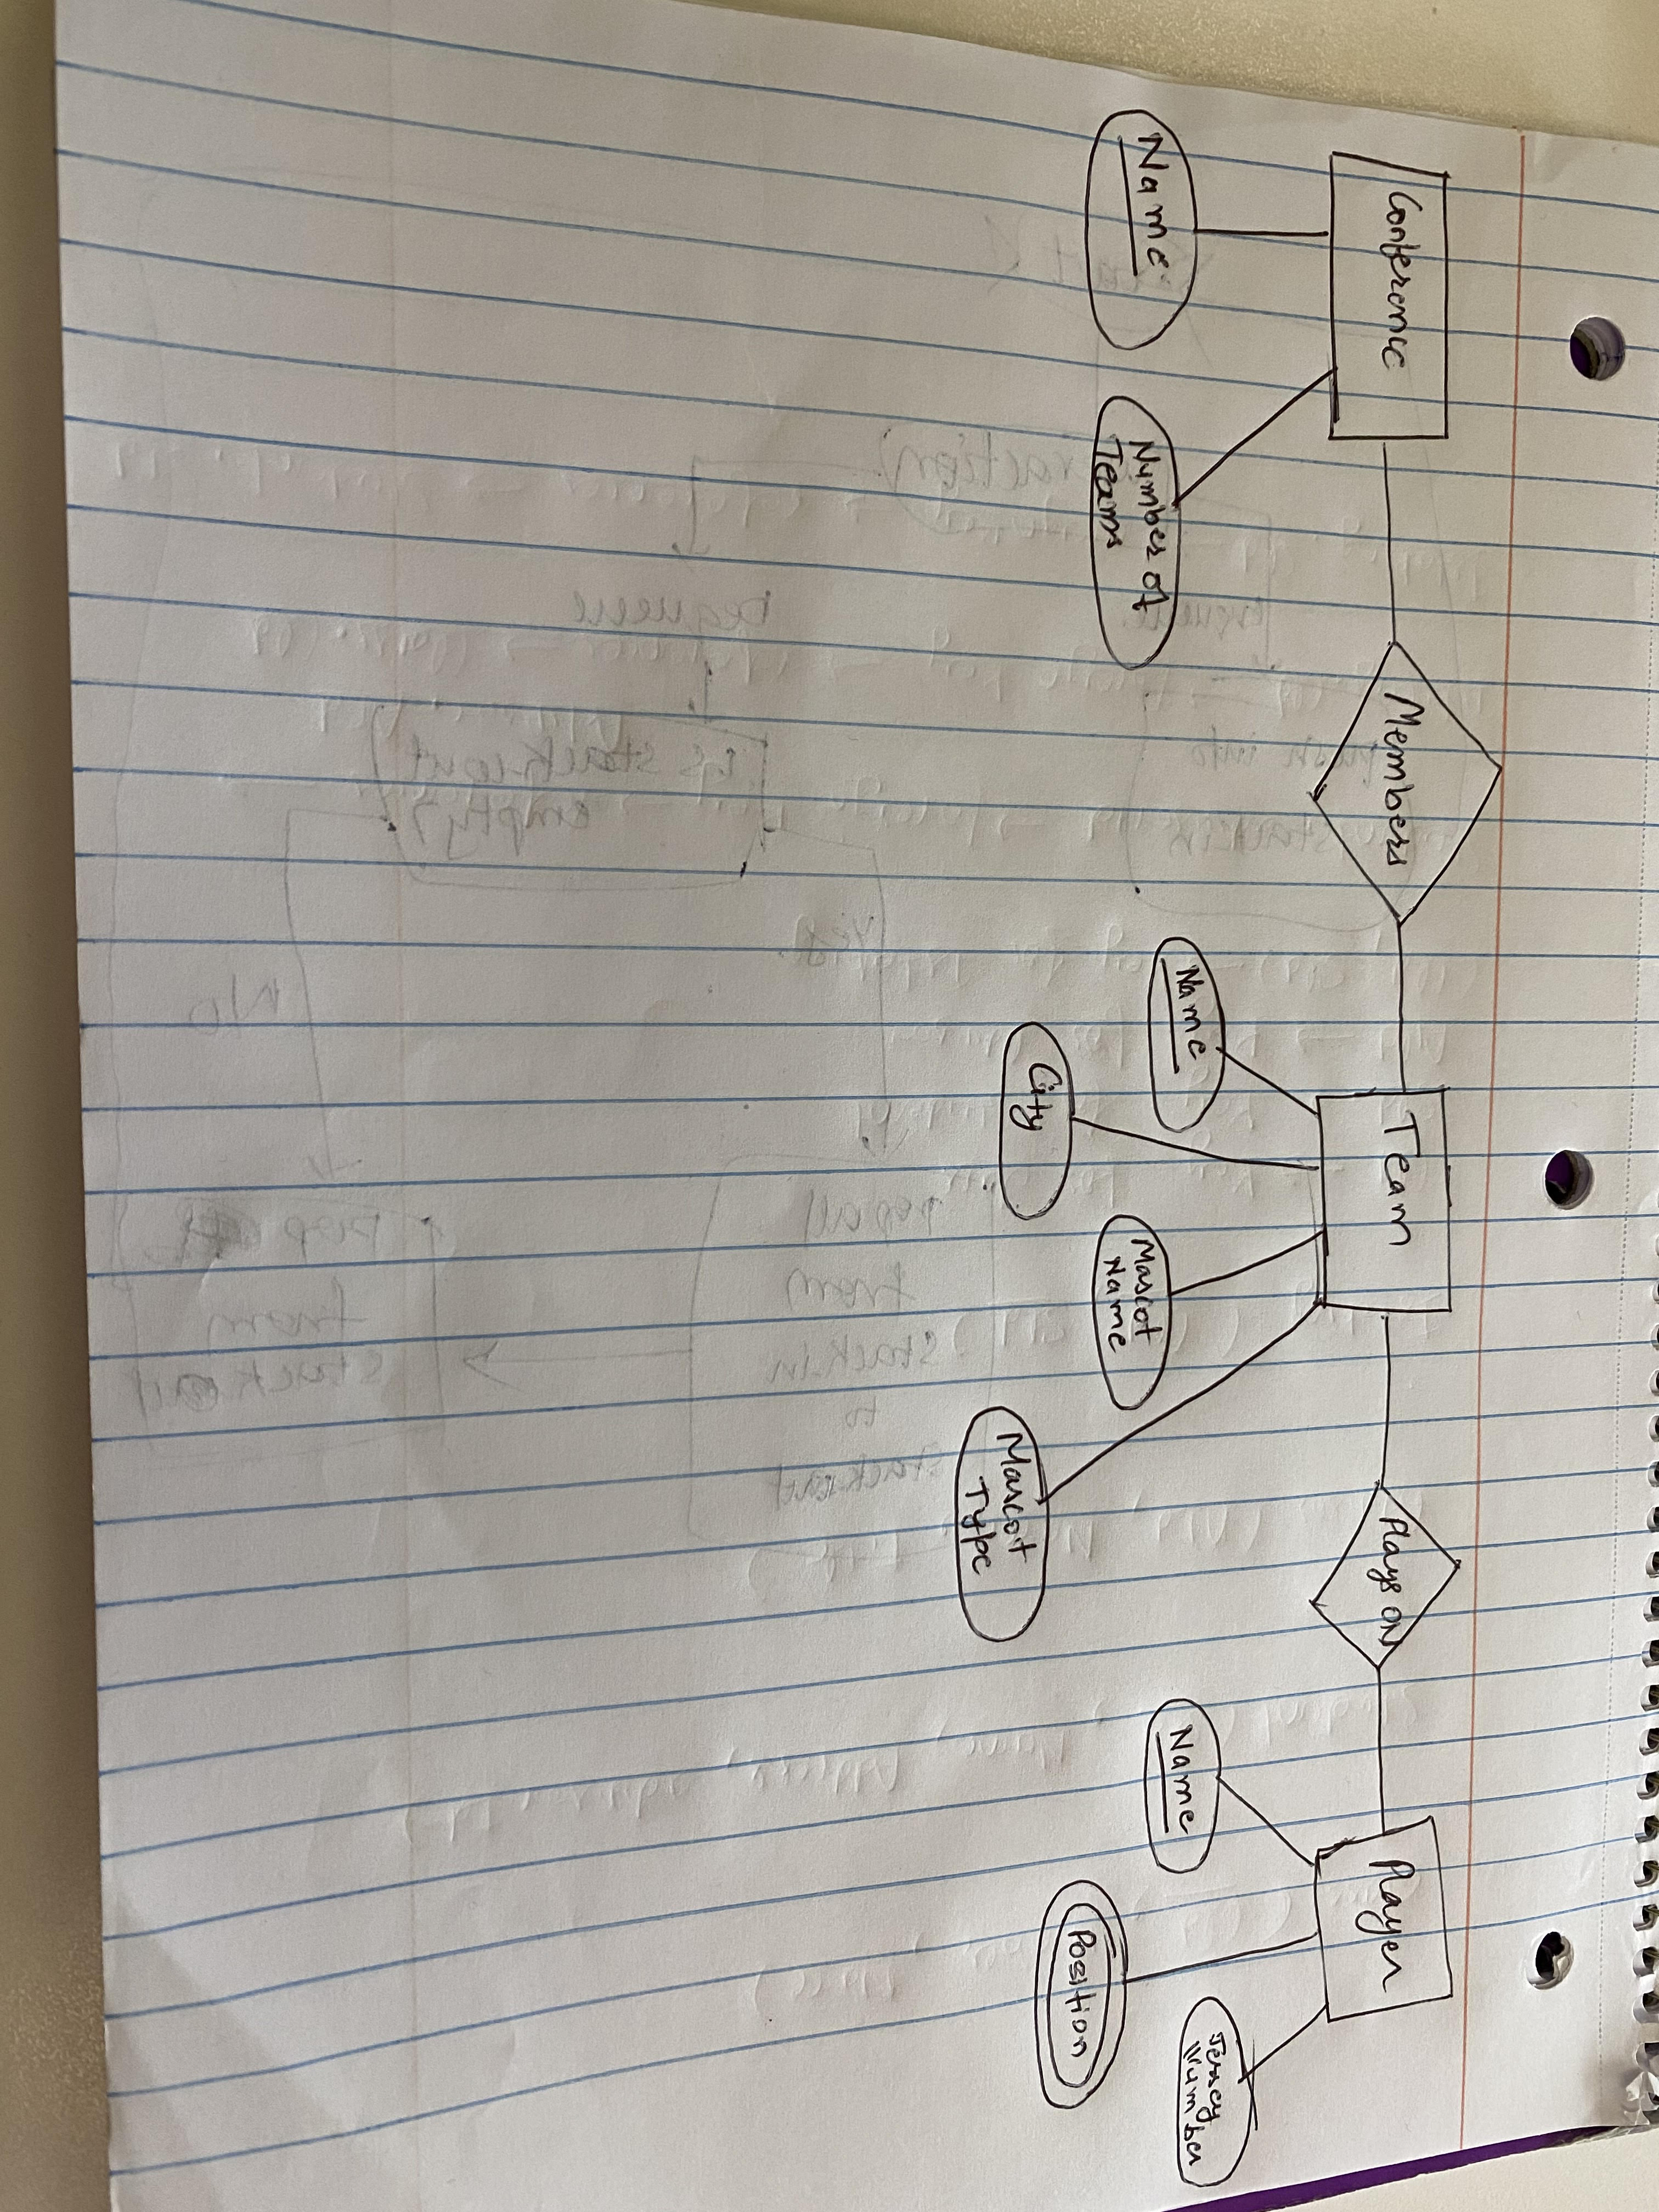 Conference
Members
Team
Plays ON
Player
Name
Number of
Teams
Name
City
Mascot
Name
Mascot
Type
Name
Position
Jersey
Number